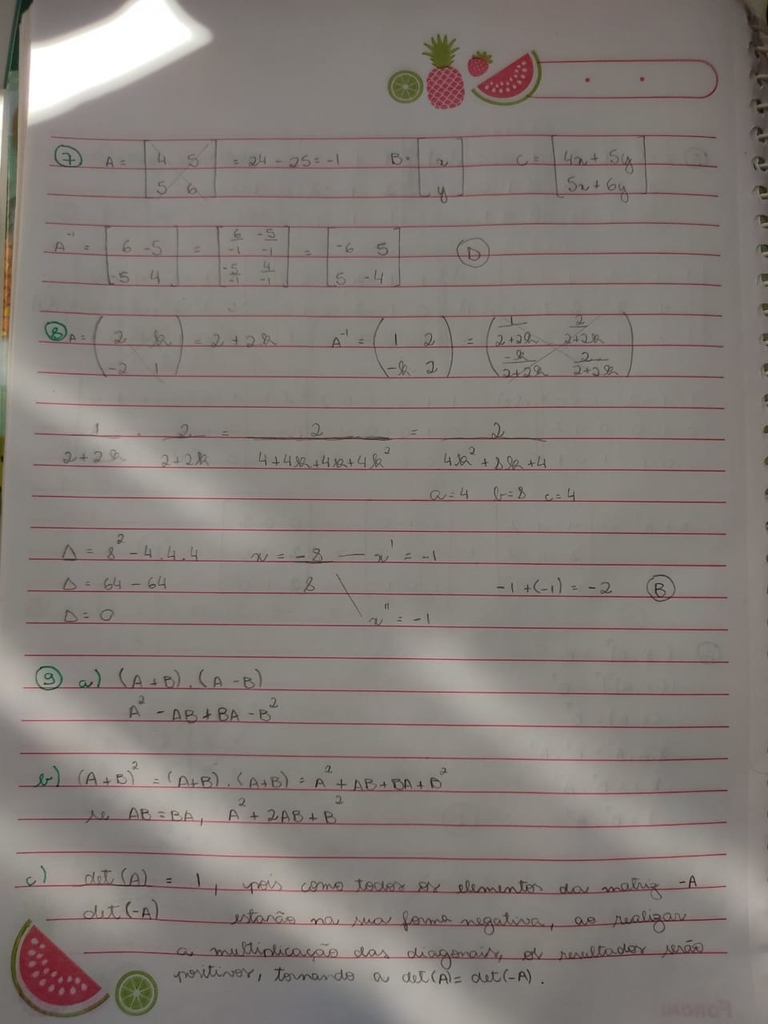 7 A = [4 5 = 24 - 25 = -1 B = [x C = [4x + 5y
5 6] y] 5x + 6y]
A⁻¹ = [6 -5 = [6/-1 -5/-1 = [-6 5 D
-5 4] -5/-1 4/-1] 5 -4]
8 A = (2 k = 2 + 2k A⁻¹ = (1 2 = (1/2+2k 2/2+2k
-2 1) -k 2) -k/2+2k 2/2+2k)
1/2+2k . 2/2+2k = 2/4+4k+4k+4k² = 2/4k²+8k+4
a=4 b=8 c=4
Δ = 8² - 4.4.4 x = -8/8 — x' = -1
Δ = 64 - 64 -1 + (-1) = -2 B
Δ = 0 x'' = -1
9 a) (A + B) . (A - B)
A² - AB + BA - B²
b) (A + B)² = (A+B) . (A+B) = A² + AB + BA + B²
se AB = BA, A² + 2AB + B²
c) det(A)/det(-A) = 1, pois como todos os elementos da matriz -A
estarão na sua forma negativa, ao realizar
a multiplicação das diagonais, os resultados serão
positivos, tornando a det(A) = det(-A).